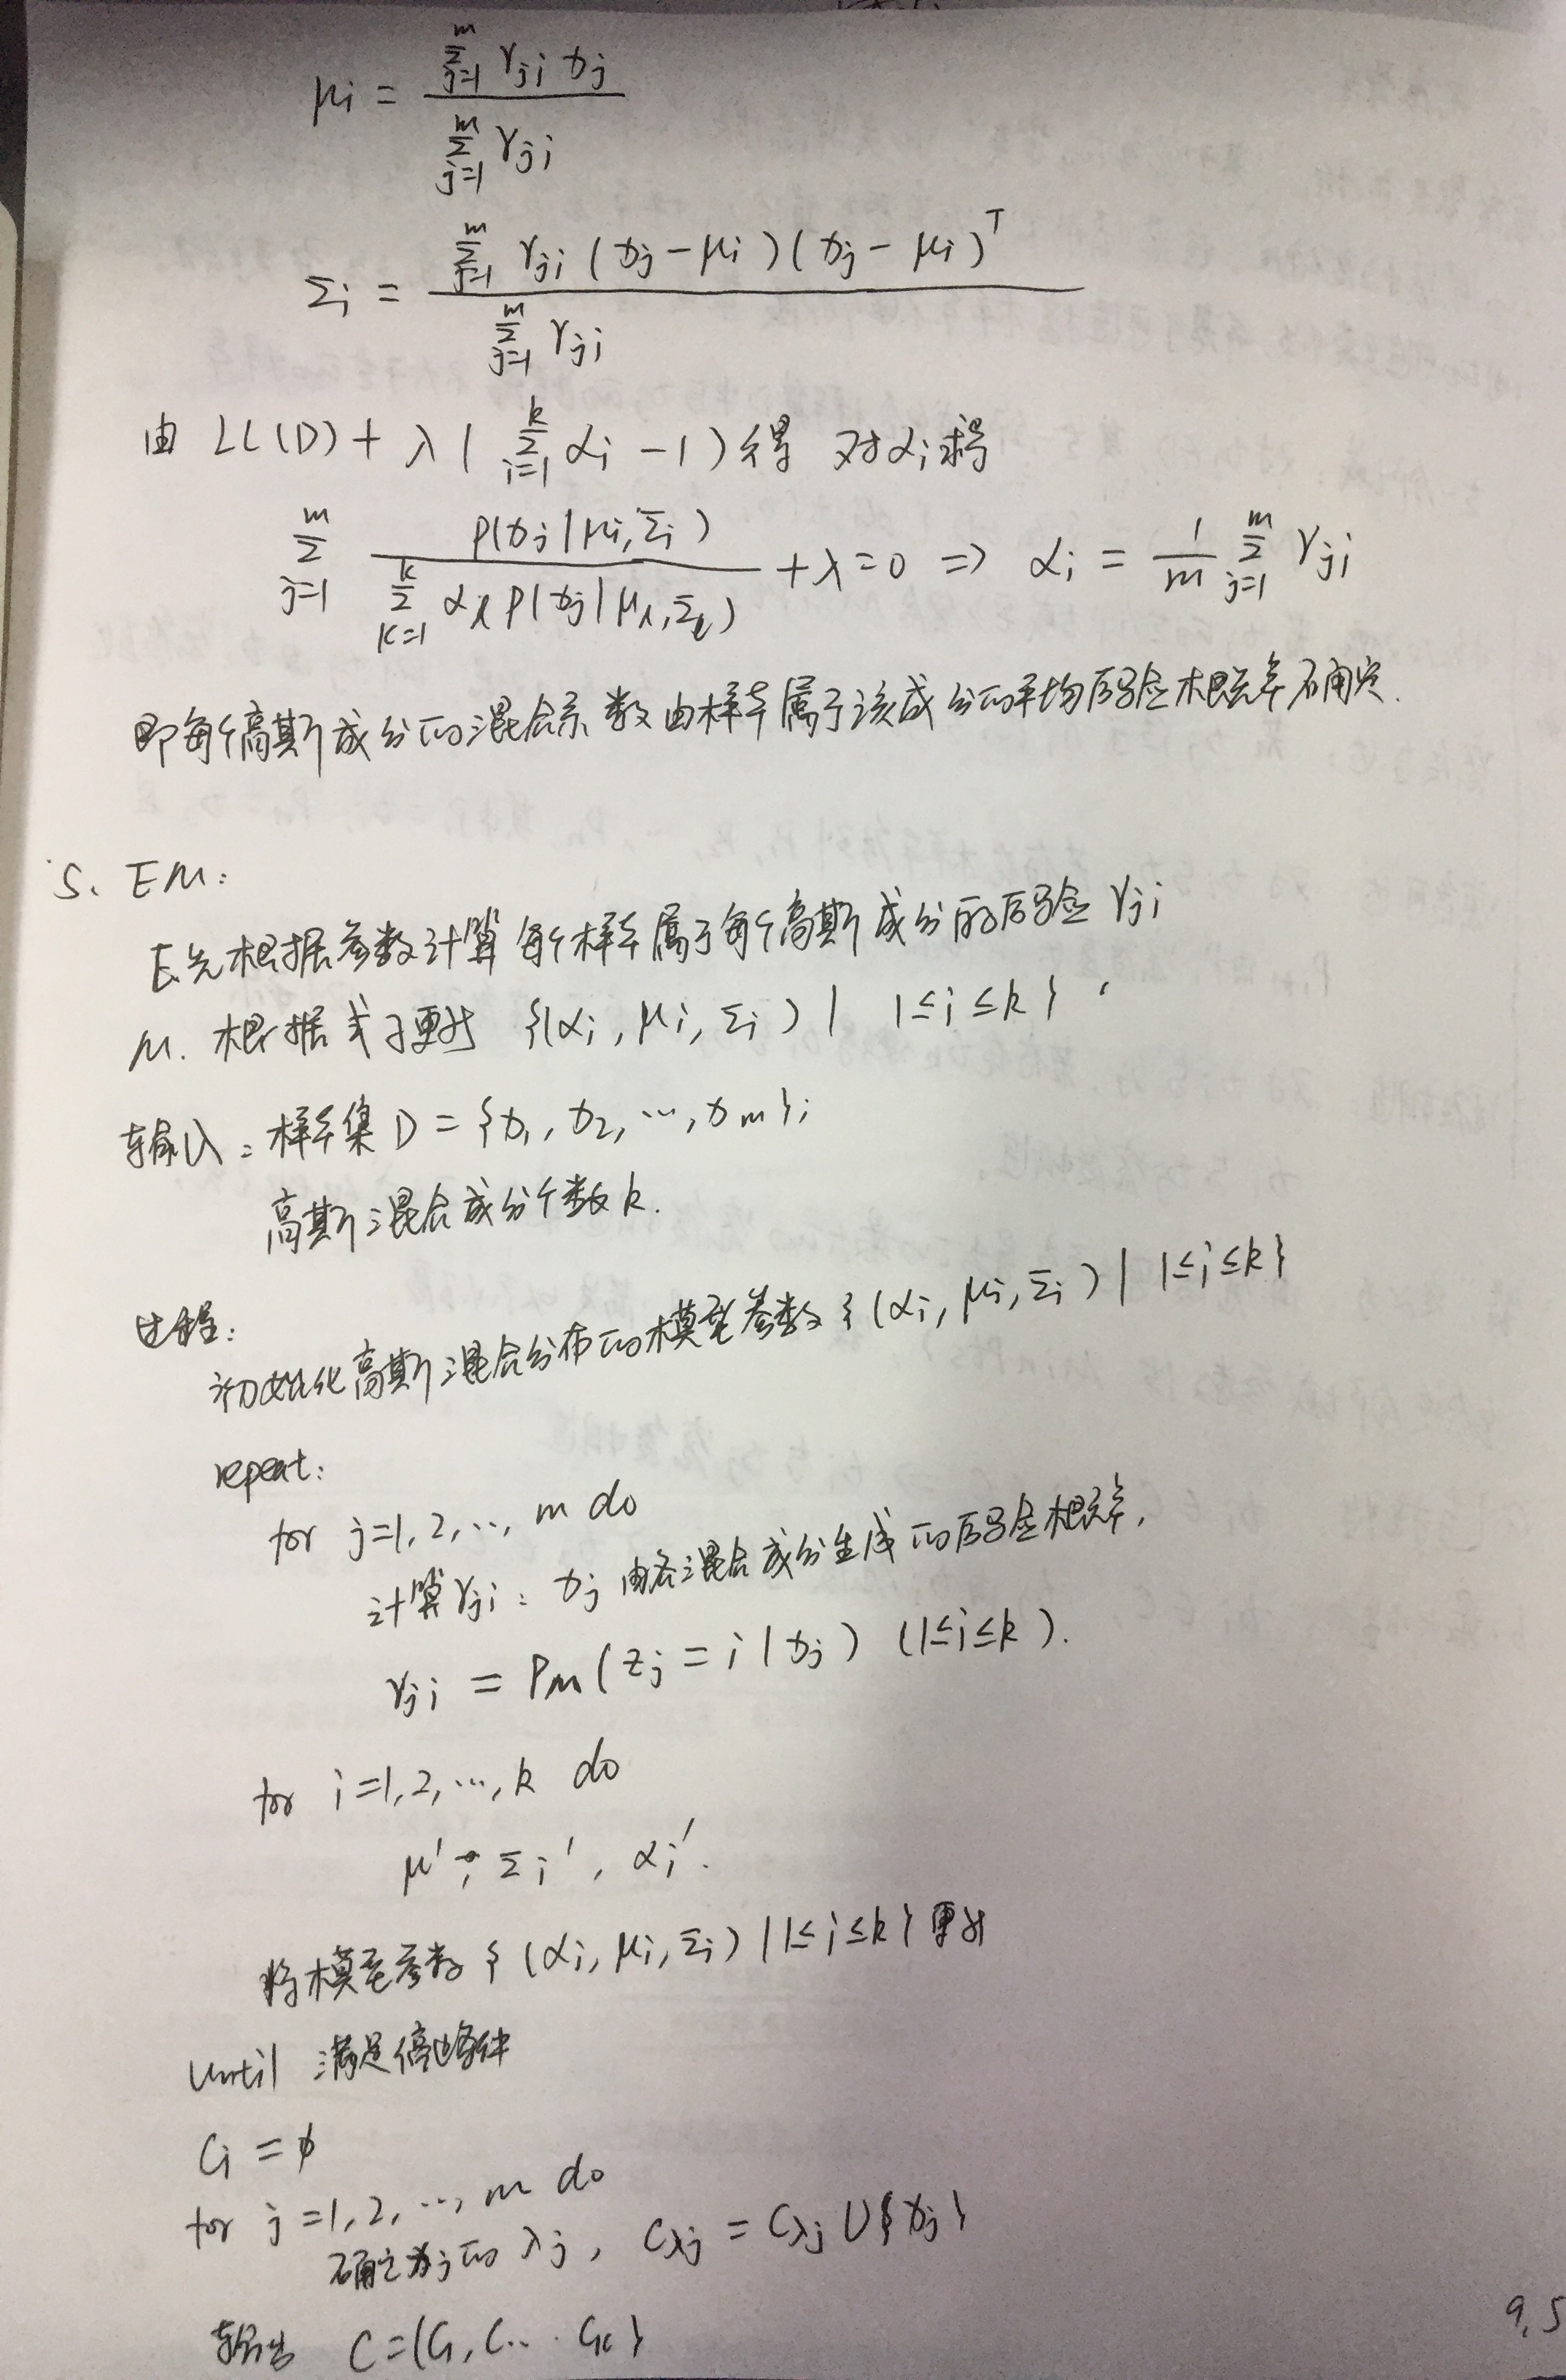 μi = Σ_{j=1}^{m} γji xj / Σ_{j=1}^{m} γji
Σi = Σ_{j=1}^{m} γji (xj − μi)(xj − μi)^T / Σ_{j=1}^{m} γji
由 LL(D) + λ(Σ_{i=1}^{k} αi − 1) 得 对αi求导
Σ_{j=1}^{m} p(xj|μi,Σi) / Σ_{k=1}^{k} αl p(xj|μl,Σl) + λ = 0 ⇒ αi = 1/m Σ_{j=1}^{m} γji
即每个高斯成分的混合系数由样本属于该成分的平均后验概率确定.
5. EM:
E.先根据参数计算每个样本属于每个高斯成分的后验 γji
M. 根据式子更新 {(αi, μi, Σi) | 1≤i≤k}
输入: 样本集 D = {x1, x2, ..., xm};
高斯混合成分个数 k.
过程:
初始化高斯混合分布的模型参数 {(αi, μi, Σi) | 1≤i≤k}
repeat:
for j=1,2,..., m do
计算γji: xj 由各混合成分生成的后验概率,
γji = PM(zj = i | xj) (1≤i≤k).
for i=1,2,...,k do
μ'i, Σi', αi'.
将模型参数 {(αi, μi, Σi) | 1≤i≤k} 更新
until 满足停止条件
Ci = ϕ
for j=1,2,..., m do
确定xj的 λj, Cλj = Cλj ∪ {xj}
输出 C = {C1, C... Ck}
9.5